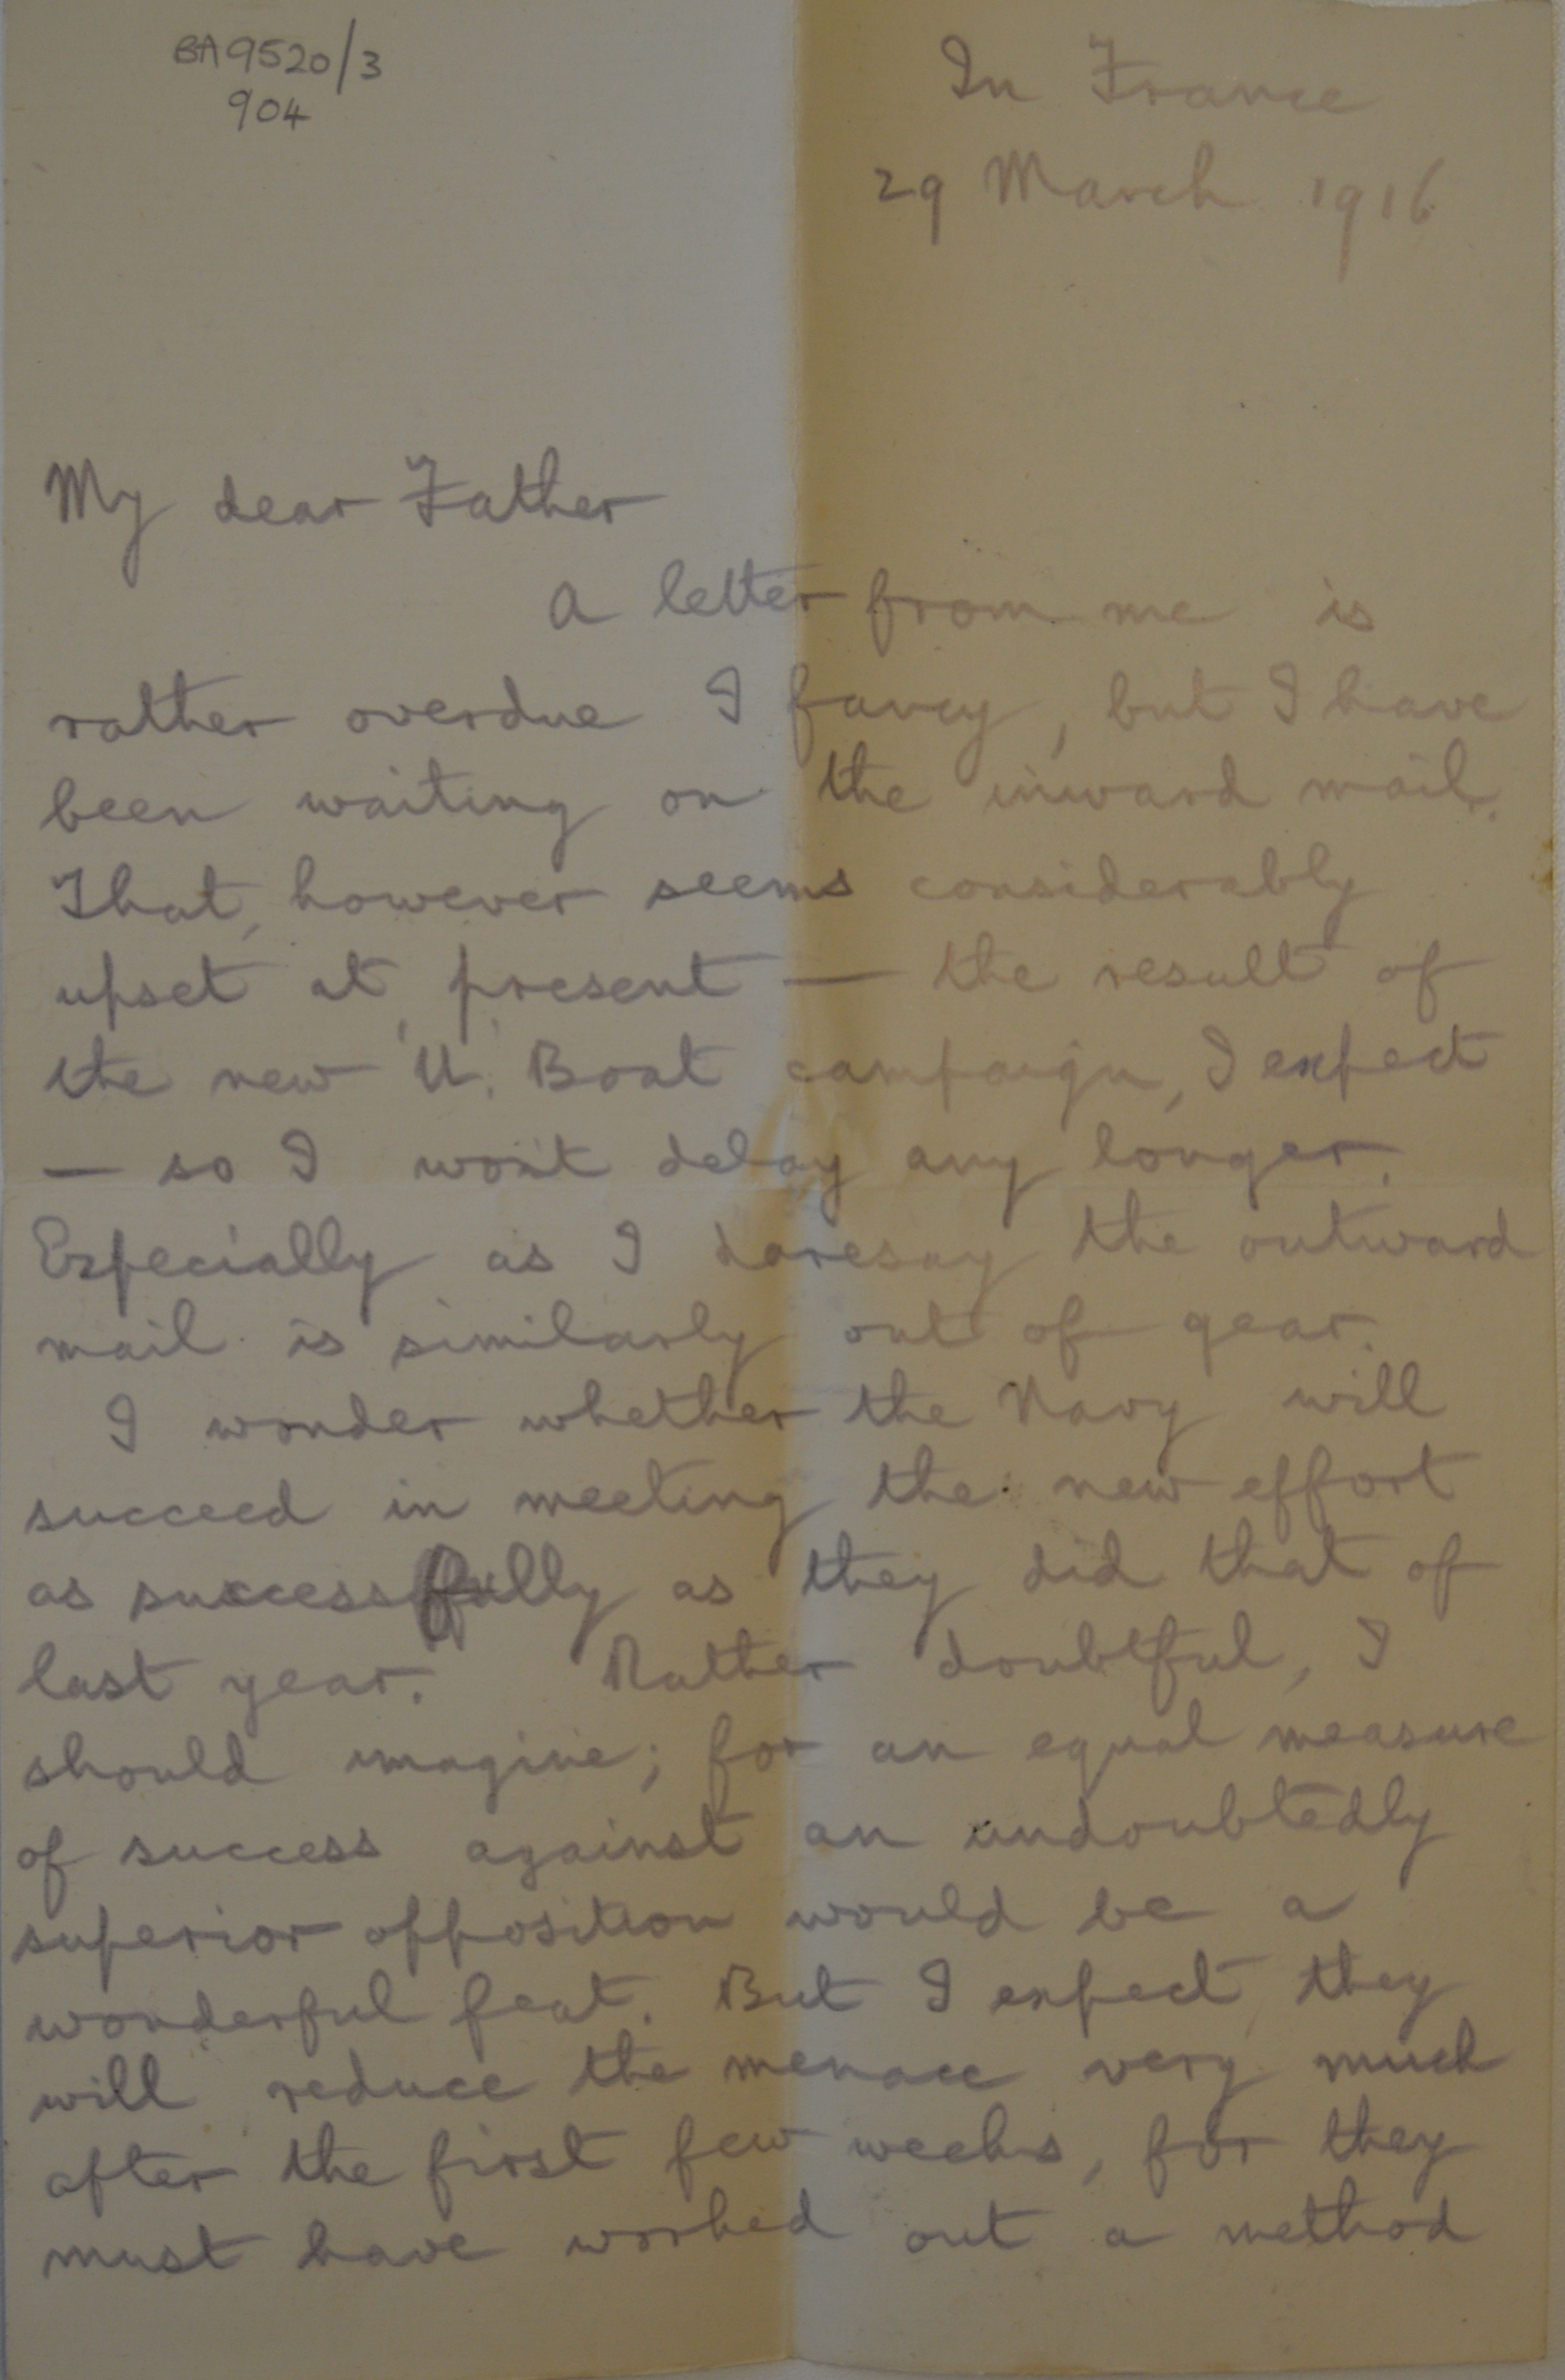 BA9520/3
904
In France
29 March 1916
My dear Father
A letter from me is
rather overdue I fancy, but I have
been waiting on the inward mail.
That, however seems considerably
upset at present — the result of
the new 'U' Boat campaign, I expect
— so I won't delay any longer.
Especially as I daresay the outward
mail is similarly out of gear.
I wonder whether the Navy will
succeed in meeting the new effort
as successfully as they did that of
last year. Rather doubtful, I
should imagine; for an equal measure
of success against an undoubtedly
superior opposition would be a
wonderful feat. But I expect they
will reduce the menace very much
after the first few weeks, for they
must have worked out a method